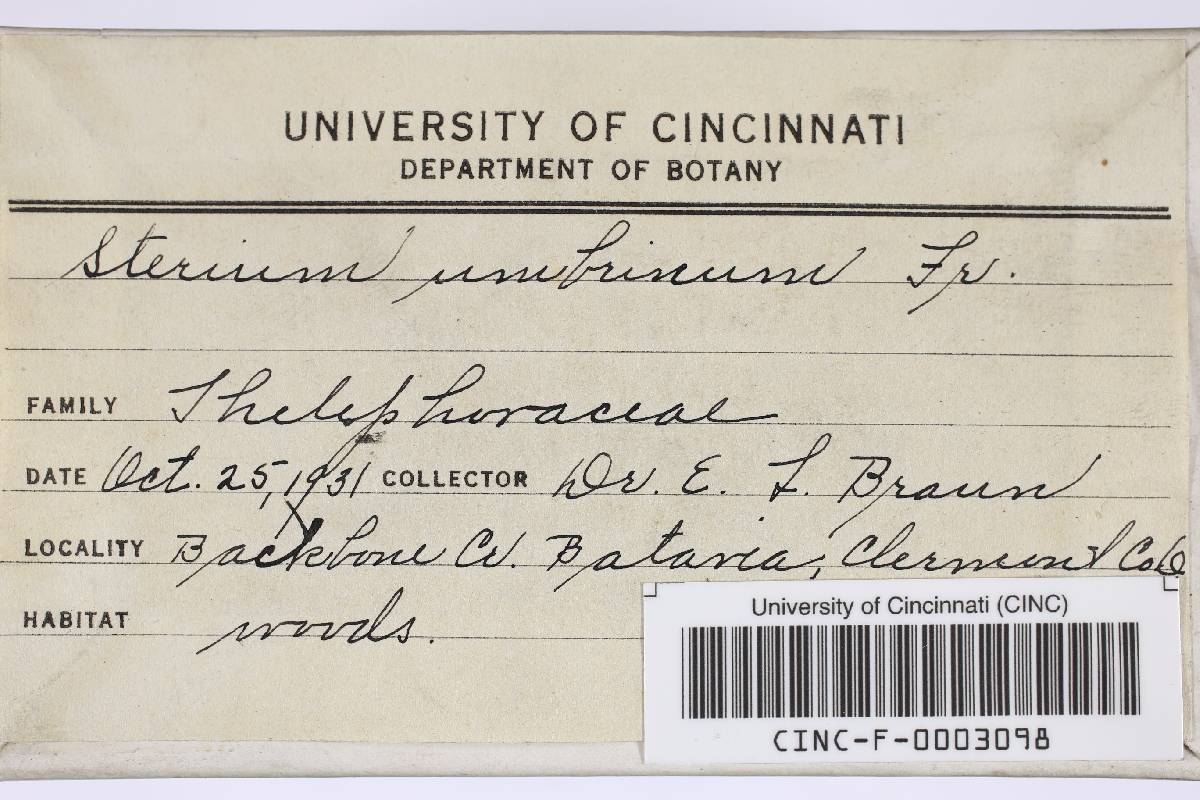 UNIVERSITY OF CINCINNATI
DEPARTMENT OF BOTANY
Sterium umbrinum Fr.
FAMILY Thelephoraceae
DATE Oct. 25, 1931 COLLECTOR Dr. E. L. Braun
LOCALITY Backbone Cr. Batavia, Clermont Co. O
HABITAT woods.
University of Cincinnati (CINC)
CINC-F-0003098